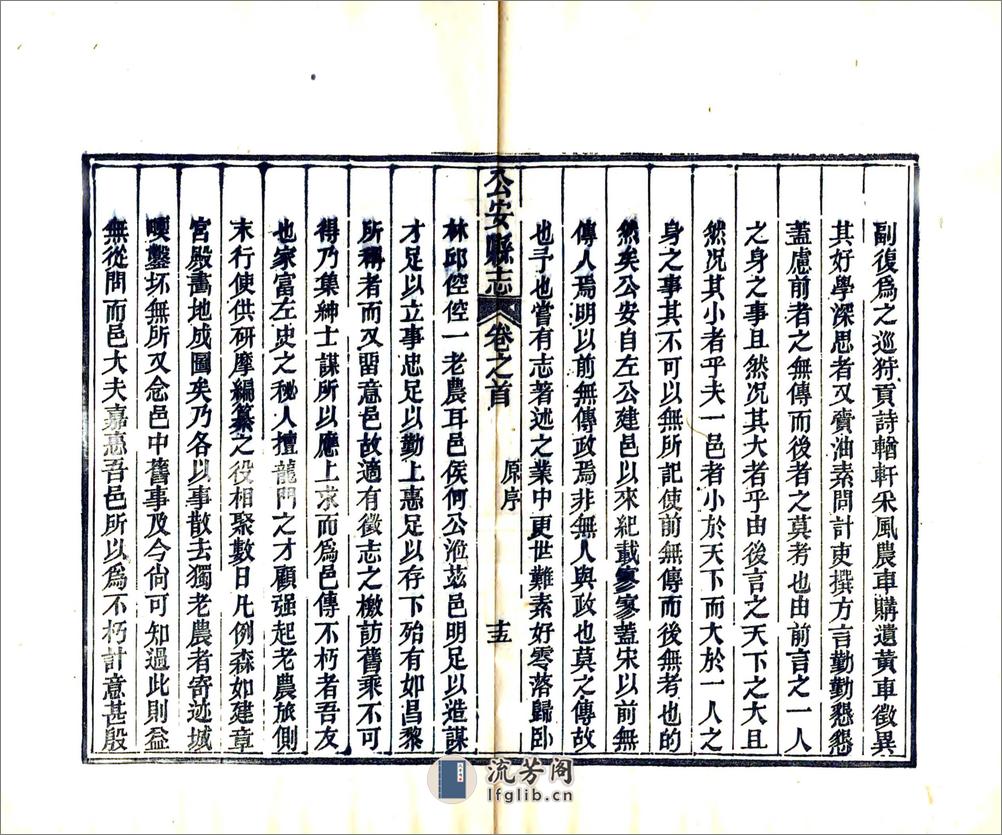 副復爲之巡狩貢詩輶軒采風農車購遺黃車徵異
其好學深思者又齎油素問計吏撰方言勤勤懇懇
蓋慮前者之無傳而後者之莫考也由前言之一人
之身之事且然况其大者乎由後言之天下之大且
然况其小者乎夫一邑者小於天下而大於一人之
身之事其不可以無所記使前無傳而後無考也的
然矣公安自左公建邑以來紀載寥寥蓋宋以前無
傳人焉明以前無傳政焉非無人與政也莫之傳故
也予也嘗有志著述之業中更世難素好零落歸卧
公安縣志 卷之首 原序 十五
林邱倥倥一老農耳邑侯何公涖茲邑明足以造謀
才足以立事忠足以勤上惠足以存下殆有如昌黎
所稱者而又留意邑故適有徵志之檄訪舊乘不可
得乃集紳士謀所以應上求而爲邑傳不朽者吾友
也家富左史之秘人擅龍門之才顧强起老農旅側
末行使供研摩編纂之役相聚數日凡例森如建章
宮殿畵地成圖矣乃各以事散去獨老農者寄迹城
隩鑿坏無所又念邑中舊事及今尙可知過此則益
無從問而邑大夫嘉惠吾邑所以爲不朽計意甚殷
流芳阁
lfglib.cn